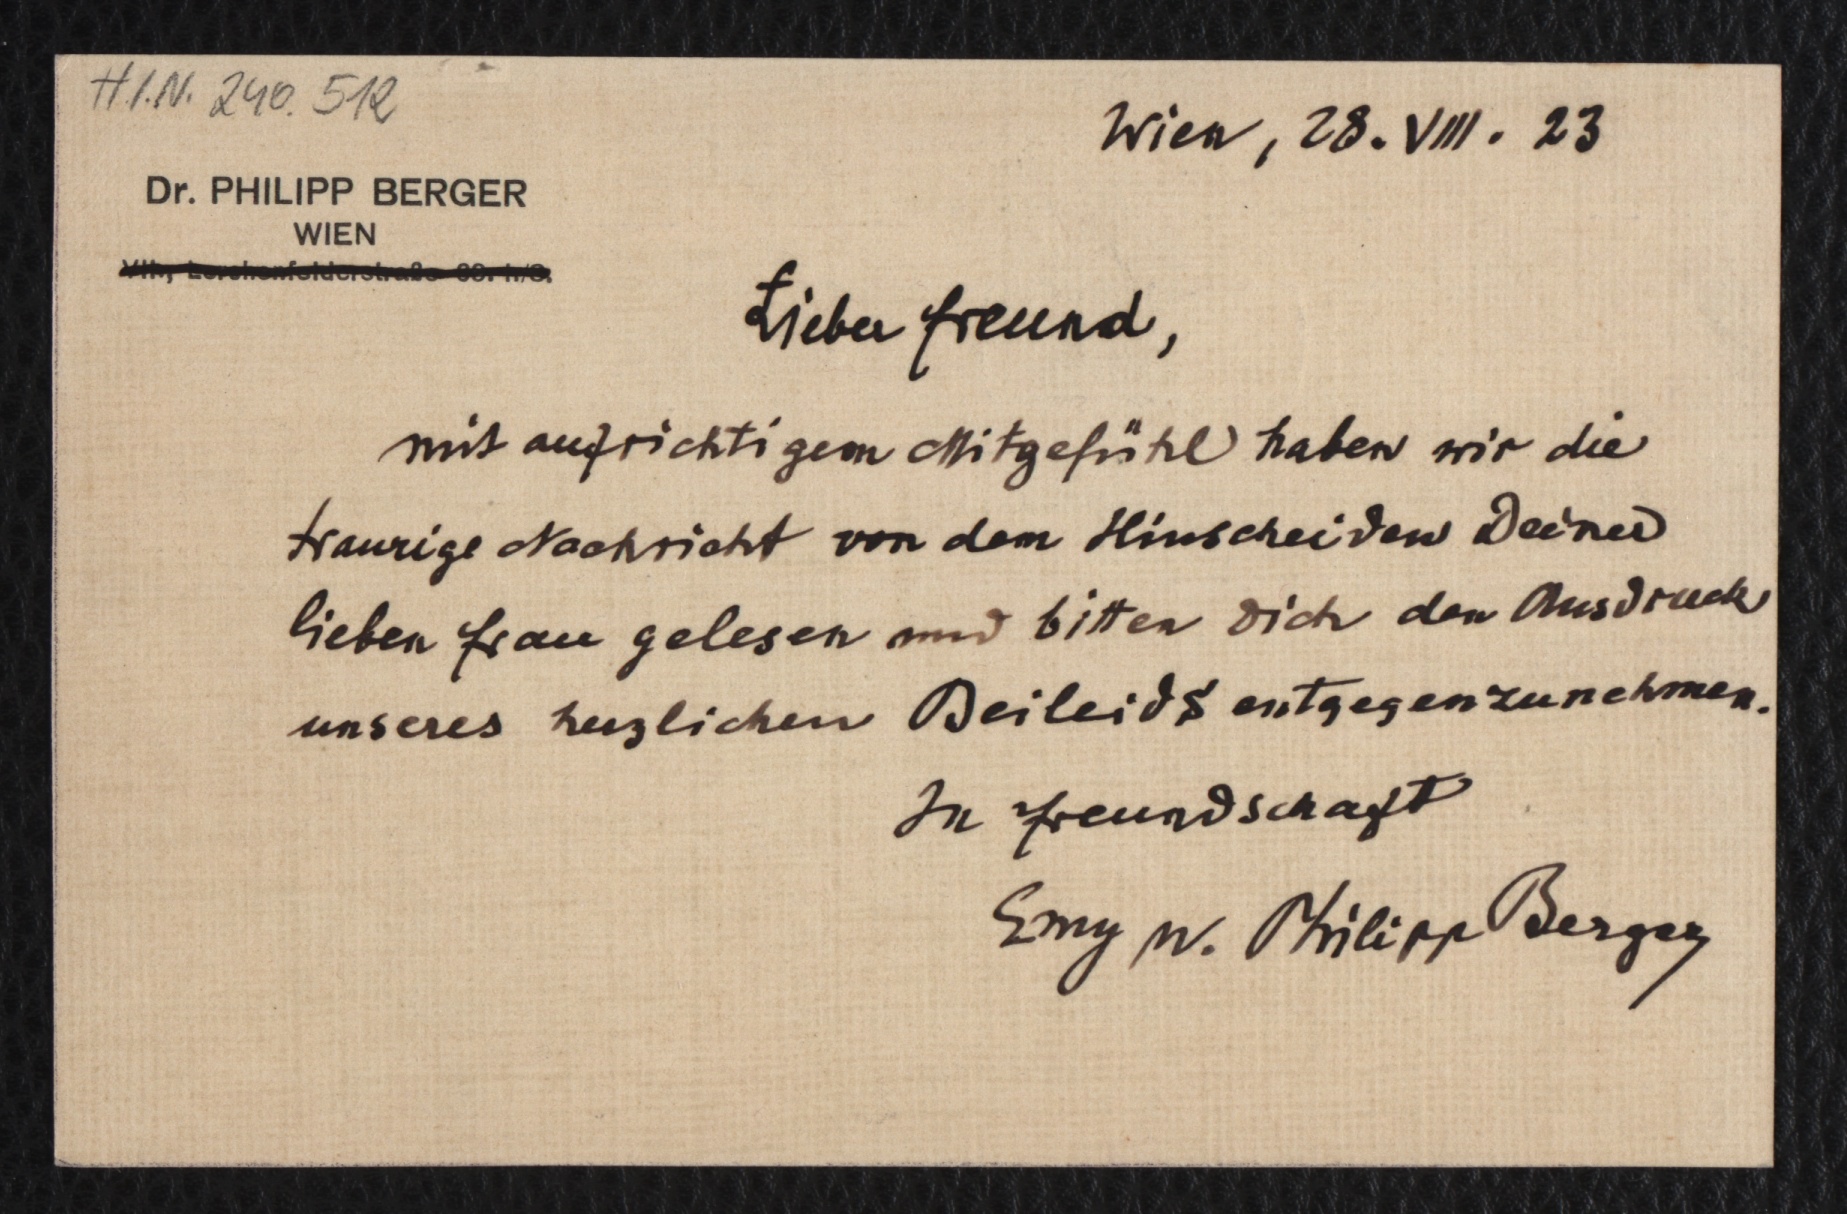 H.I.N. 240.512
Wien, 28. VIII. 23
Dr. PHILIPP BERGER
WIEN
Lieber Freund,
mit aufrichtigem Mitgefühl haben wir die
traurige Nachricht von dem Hinscheiden Deiner
lieben Frau gelesen und bitten Dich den Ausdruck
unseres herzlichen Beileids entgegenzunehmen.
In Freundschaft
Emy u. Philipp Berger